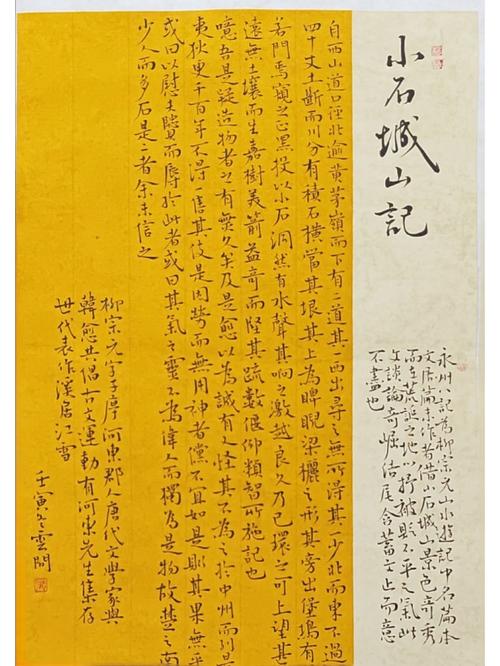 小石城山記
永州八記為柳宗元山水遊記中名篇本
文居篇末作者借小石城山景色奇秀
而在荒誕之地以抒被貶不平之氣此
文談論奇崛結尾含蓄文止而意
不盡也
自西山道口徑北逾黄茅嶺而下有二道其一西出尋之無所得其一少北而東不過
四十丈土斷而川分有積石橫當其垠其上為睥睨梁欐之形其旁出堡塢有
若門焉窺之正黑投以小石洞然有水聲其響之激越良久乃已環之可上望甚
遠無土壤而生嘉樹美箭益奇而堅其疏數偃仰類智所施記也
噫吾是疑造物者之有無久矣及是愈以為誠有又怪其不為之於中州而列是
夷狄更千百年不得一售其伎是固勞而無用神者儻不宜如是則其果無乎
或曰以慰夫賢而辱於此者或曰其氣之靈不為偉人而獨為是物故楚之南
少人而多石是二者余未信之
柳宗元字子厚河東郡人唐代文學家與
韓愈共倡古文運動有河東先生集存
世代表作溪居江雪
壬寅冬雲